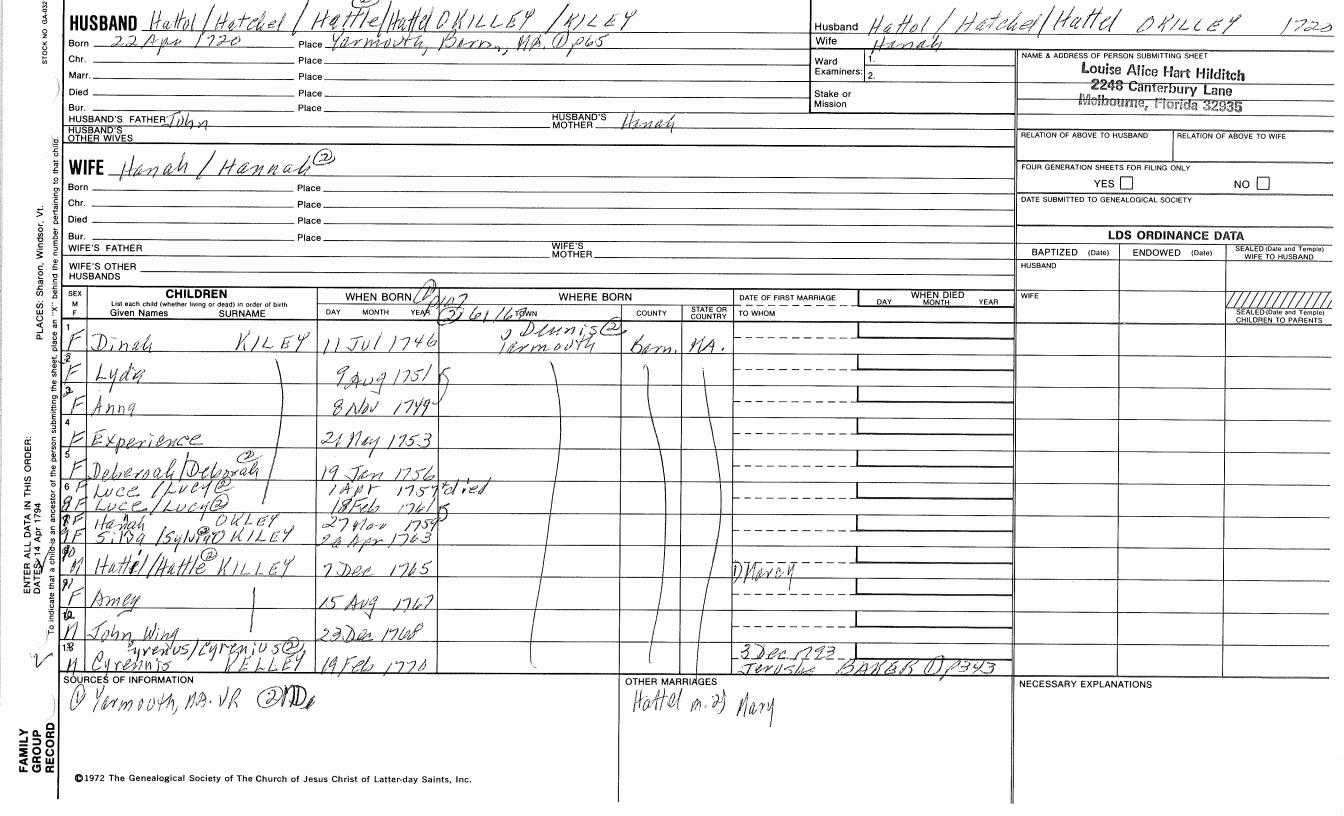 STOCK NO. GA-032
HUSBAND Hattol/Hatchel/Hattle/Hattel OKILLEY /KILEY
Born 22 Apr 1720 Place Yarmouth, Barn., MA. ① p65
Chr. Place
Marr. Place
Died Place
Bur. Place
HUSBAND'S FATHER John HUSBAND'S MOTHER Hanah
HUSBAND'S OTHER WIVES
Husband Hattol/Hatchel/Hattel OKILLEY 1720
Wife Hanah
Ward Examiners: 1.
2.
Stake or Mission
NAME & ADDRESS OF PERSON SUBMITTING SHEET
Louise Alice Hart Hilditch
2248 Canterbury Lane
Melbourne, Florida 32935
RELATION OF ABOVE TO HUSBAND RELATION OF ABOVE TO WIFE
FOUR GENERATION SHEETS FOR FILING ONLY
YES NO
DATE SUBMITTED TO GENEALOGICAL SOCIETY
WIFE Hanah/Hannah ②
Born Place
Chr. Place
Died Place
Bur. Place
WIFE'S FATHER WIFE'S MOTHER
WIFE'S OTHER HUSBANDS
LDS ORDINANCE DATA
BAPTIZED (Date) ENDOWED (Date) SEALED (Date and Temple) WIFE TO HUSBAND
HUSBAND
WIFE
SEALED (Date and Temple) CHILDREN TO PARENTS
SEX M F
CHILDREN
List each child (whether living or dead) in order of birth
Given Names SURNAME
WHEN BORN
DAY MONTH YEAR
WHERE BORN
TOWN COUNTY STATE OR COUNTRY
DATE OF FIRST MARRIAGE
TO WHOM
WHEN DIED
DAY MONTH YEAR
1 F Dinah KILEY 11 Jul 1746 Dennis ② Yarmouth Barn. MA.
F Lydia 9 Aug 1751
F Anna 8 Nov 1749
4 F Experience 21 May 1753
5 F Debersah/Deborah ② 19 Jan 1756
6 F Luce/Lucy ② 1 Apr 1757 died
F Luce/Lucy ② 18 Feb 1761
F Hanah OKLEY 27 Nov 1759
F Silva/Sylvia ② OKILEY 22 Apr 1763
M Hattel/Hattle ② KILLEY 7 Dec 1765 ① Marcy
F Amey 15 Aug 1767
M John Wing 23 Dec 1768
13 Cyrenus/Cyrenius ② 3 Dec 1793
M Cyrennis KELLEY 19 Feb 1770 Jerusha BAKER ① p343
SOURCES OF INFORMATION
① Yarmouth, MA. VR ②
OTHER MARRIAGES
Hattel m. 2) Mary
NECESSARY EXPLANATIONS
©1972 The Genealogical Society of The Church of Jesus Christ of Latter-day Saints, Inc.
FAMILY GROUP RECORD
ENTER ALL DATA IN THIS ORDER:
DATES: 14 Apr 1794
PLACES: Sharon, Windsor, Vt.
To indicate that a child is an ancestor of the person submitting the sheet, place an "X" behind the number pertaining to that child.